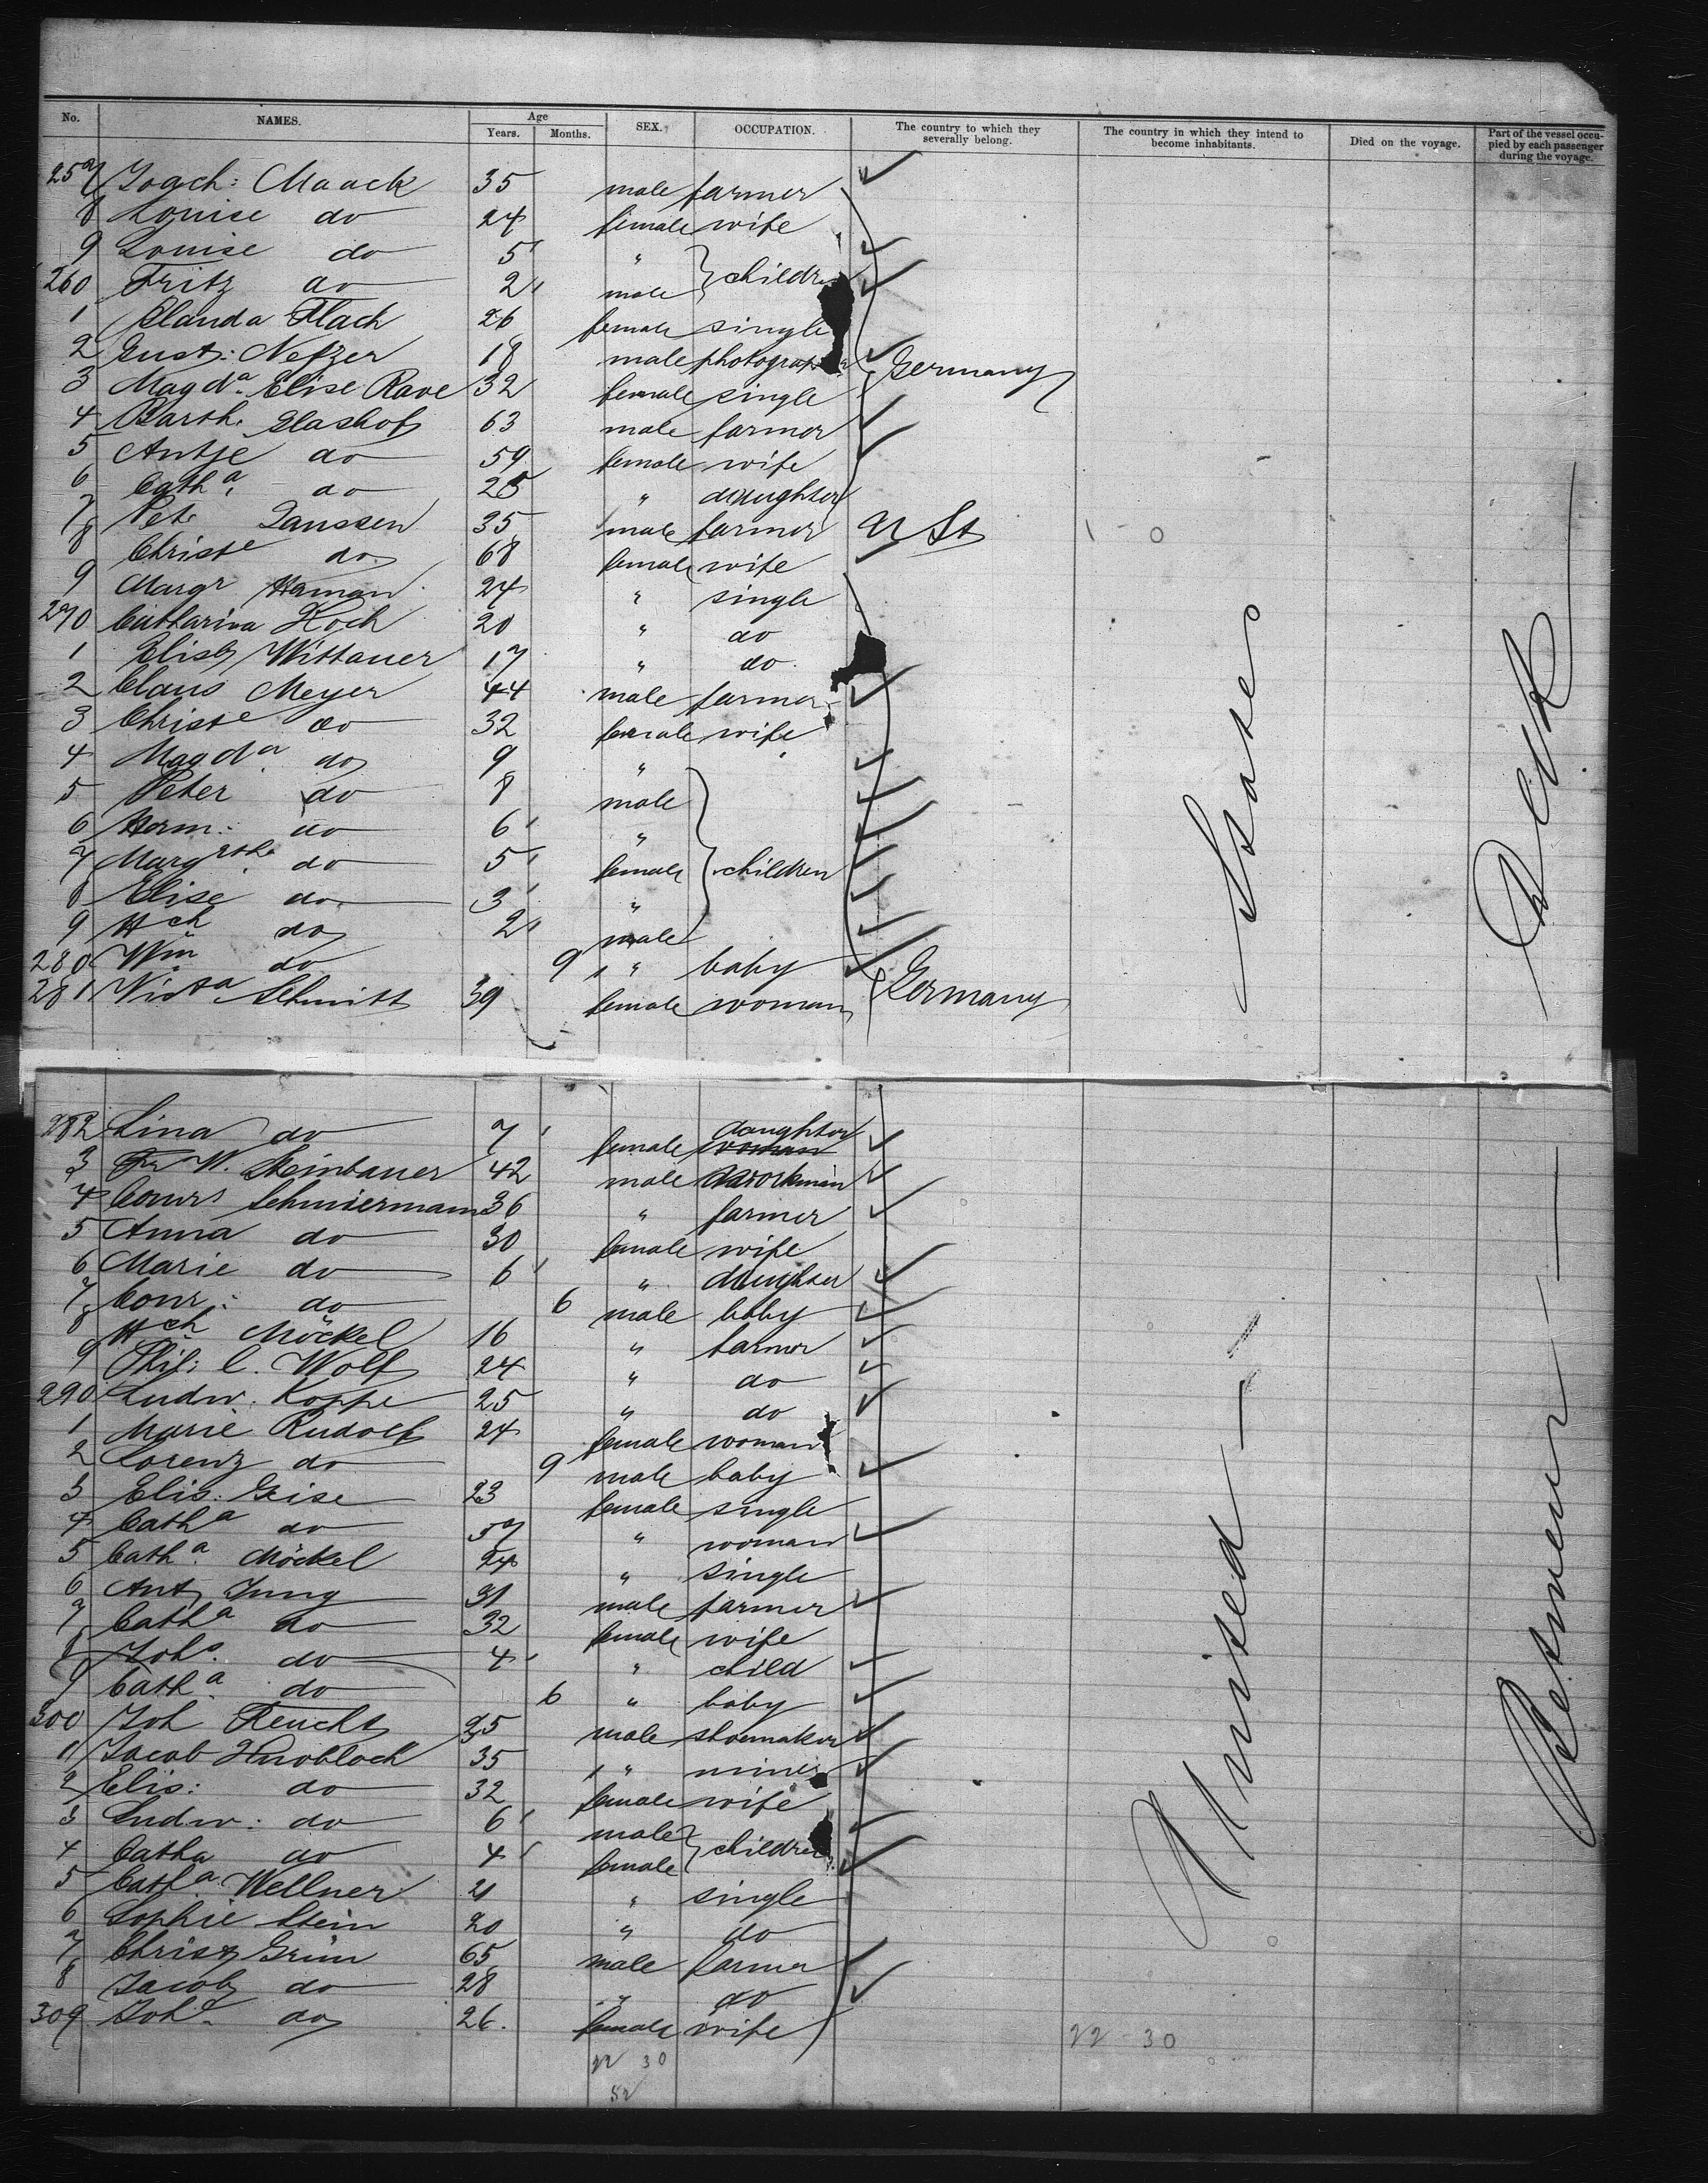 No. NAMES. Age Years. Months. SEX. OCCUPATION. The country to which they severally belong. The country in which they intend to become inhabitants. Died on the voyage. Part of the vessel occupied by each passenger during the voyage.
257 Joach: Maack 35 male farmer
8 Louise do 24 female wife
9 Louise do 5 " children
260 Fritz do 2 male
1 Flach 26 female single
2 Gust: Netzer 18 male
3 Magda. Elise Rave 32 female single Germany
4 Barth. Glashof 63 male farmer
5 Antje do 59 female wife
6 Catha. do 25 " daughter
7 Pete Janssen 35 male farmer U St
8 Christe do 68 female wife
9 Margr Haman 24 " single
270 Catharina Koch 20 " do
1 Elisb Wittauer 17 " do
2 Claus Meyer 44 male farmer
3 Christe do 32 female wife
4 Magda. do 9 "
5 Peter do 8 male
6 Herm: do 6 "
7 Margrthe. do 5 female children
8 Elise do 3 "
9 Hch do 2 male
280 Wm do 9 " baby
281 Schmitt 39 female woman Germany
282 Lina do 7 female daughter woman
3 W. Steinbauer 42 male workman
4 Schmiermann 36 " farmer
5 Anna do 30 female wife
6 Marie do 6 " daughter
7 Conr: do 6 male baby
8 Hch Möckel 16 " farmer
9 Phil: C. Wolf 24 " do
290 Ludw: Koppe 25 " do
1 Marie Rudolf 24 female woman
2 Lorenz do 9 male baby
3 Elis: Geise 23 female single
4 Catha do 57 " woman
5 Catha. Möckel 24 " single
6 Ant Jung 31 male farmer
7 Catha do 32 female wife
8 Johs. do 4 " child
9 Catha. do 6 " baby
300 Joh Feucht 25 male shoemaker
1 Jacob Knobloch 35 " miner
2 Elis: do 32 female wife
3 Ludw: do 6 male children
4 Catha do 4 female
5 Catha. Wellner 21 " single
6 Sophie Stein 20 " do
7 Christ Grün 65 male farmer
8 Jacob do 28 " do
309 Johe do 26. female wife
22 30 22 30
52
United States